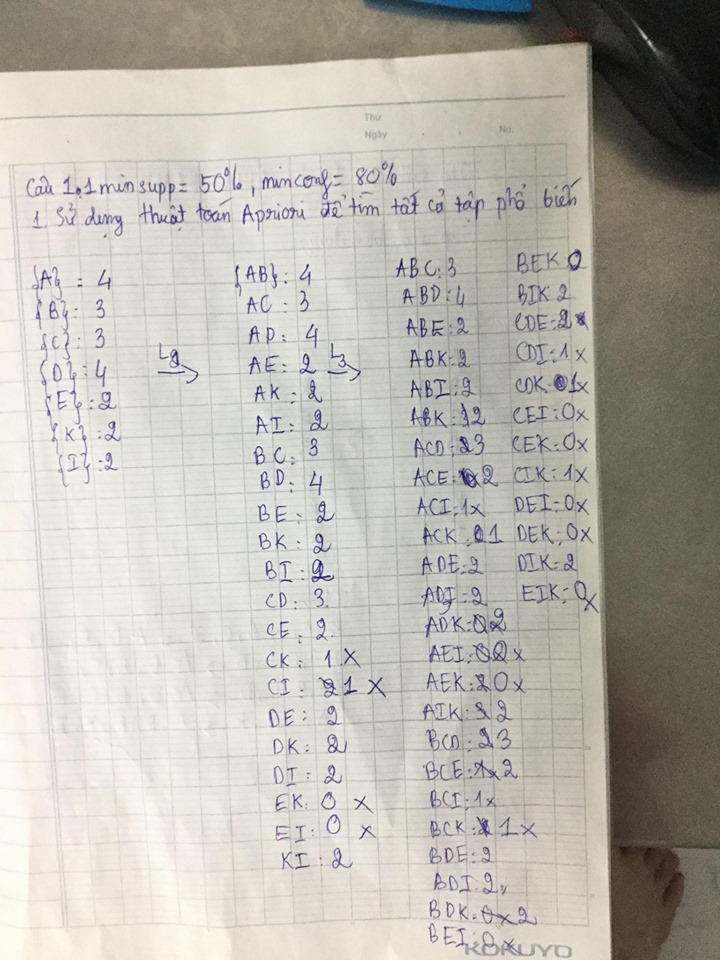 Thứ
Ngày
No.
Câu 1. 1 minsupp = 50%, minconf = 80%
1. Sử dụng thuật toán Apriori để tìm tất cả tập phổ biến
{A} : 4
{B} : 3
{C} : 3
{D} : 4
{E} : 2
{K} : 2
{I} : 2
L2
{AB} : 4
AC : 3
AD : 4
AE : 2
AK : 2
AI : 2
BC : 3
BD : 4
BE : 2
BK : 2
BI : 2
CD : 3
CE : 2
CK : 1 x
CI : 1 x
DE : 2
DK : 2
DI : 2
EK : 0 x
EI : 0 x
KI : 2
L3
ABC : 3
ABD : 4
ABE : 2
ABK : 2
ABI : 2
ABK : 2
ACD : 3
ACE : 2
ACI : 1x
ACK : 1
ADE : 2
ADI : 2
ADK : 2
AEI : 0x
AEK : 0x
AIK : 2
BCD : 3
BCE : 2
BCI : 1x
BCK : 1x
BDE : 2
BDI : 2
BDK : 2
BEI : 0x
BEK 0
BIK 2
CDE : 2
CDI : 1x
CDK : 1x
CEI : 0x
CEK : 0x
CIK : 1x
DEI : 0x
DEK : 0x
DIK : 2
EIK : 0x
KOKUYO